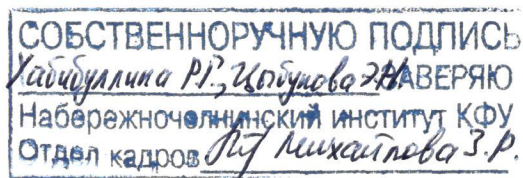 СОБСТВЕННОРУЧНУЮ ПОДПИСЬ
Хабибуллина Р.Г., Цыбунова Э.Н. ЗАВЕРЯЮ
Набережночелнинский институт КФУ
Отдел кадров Михайлова З.Р.